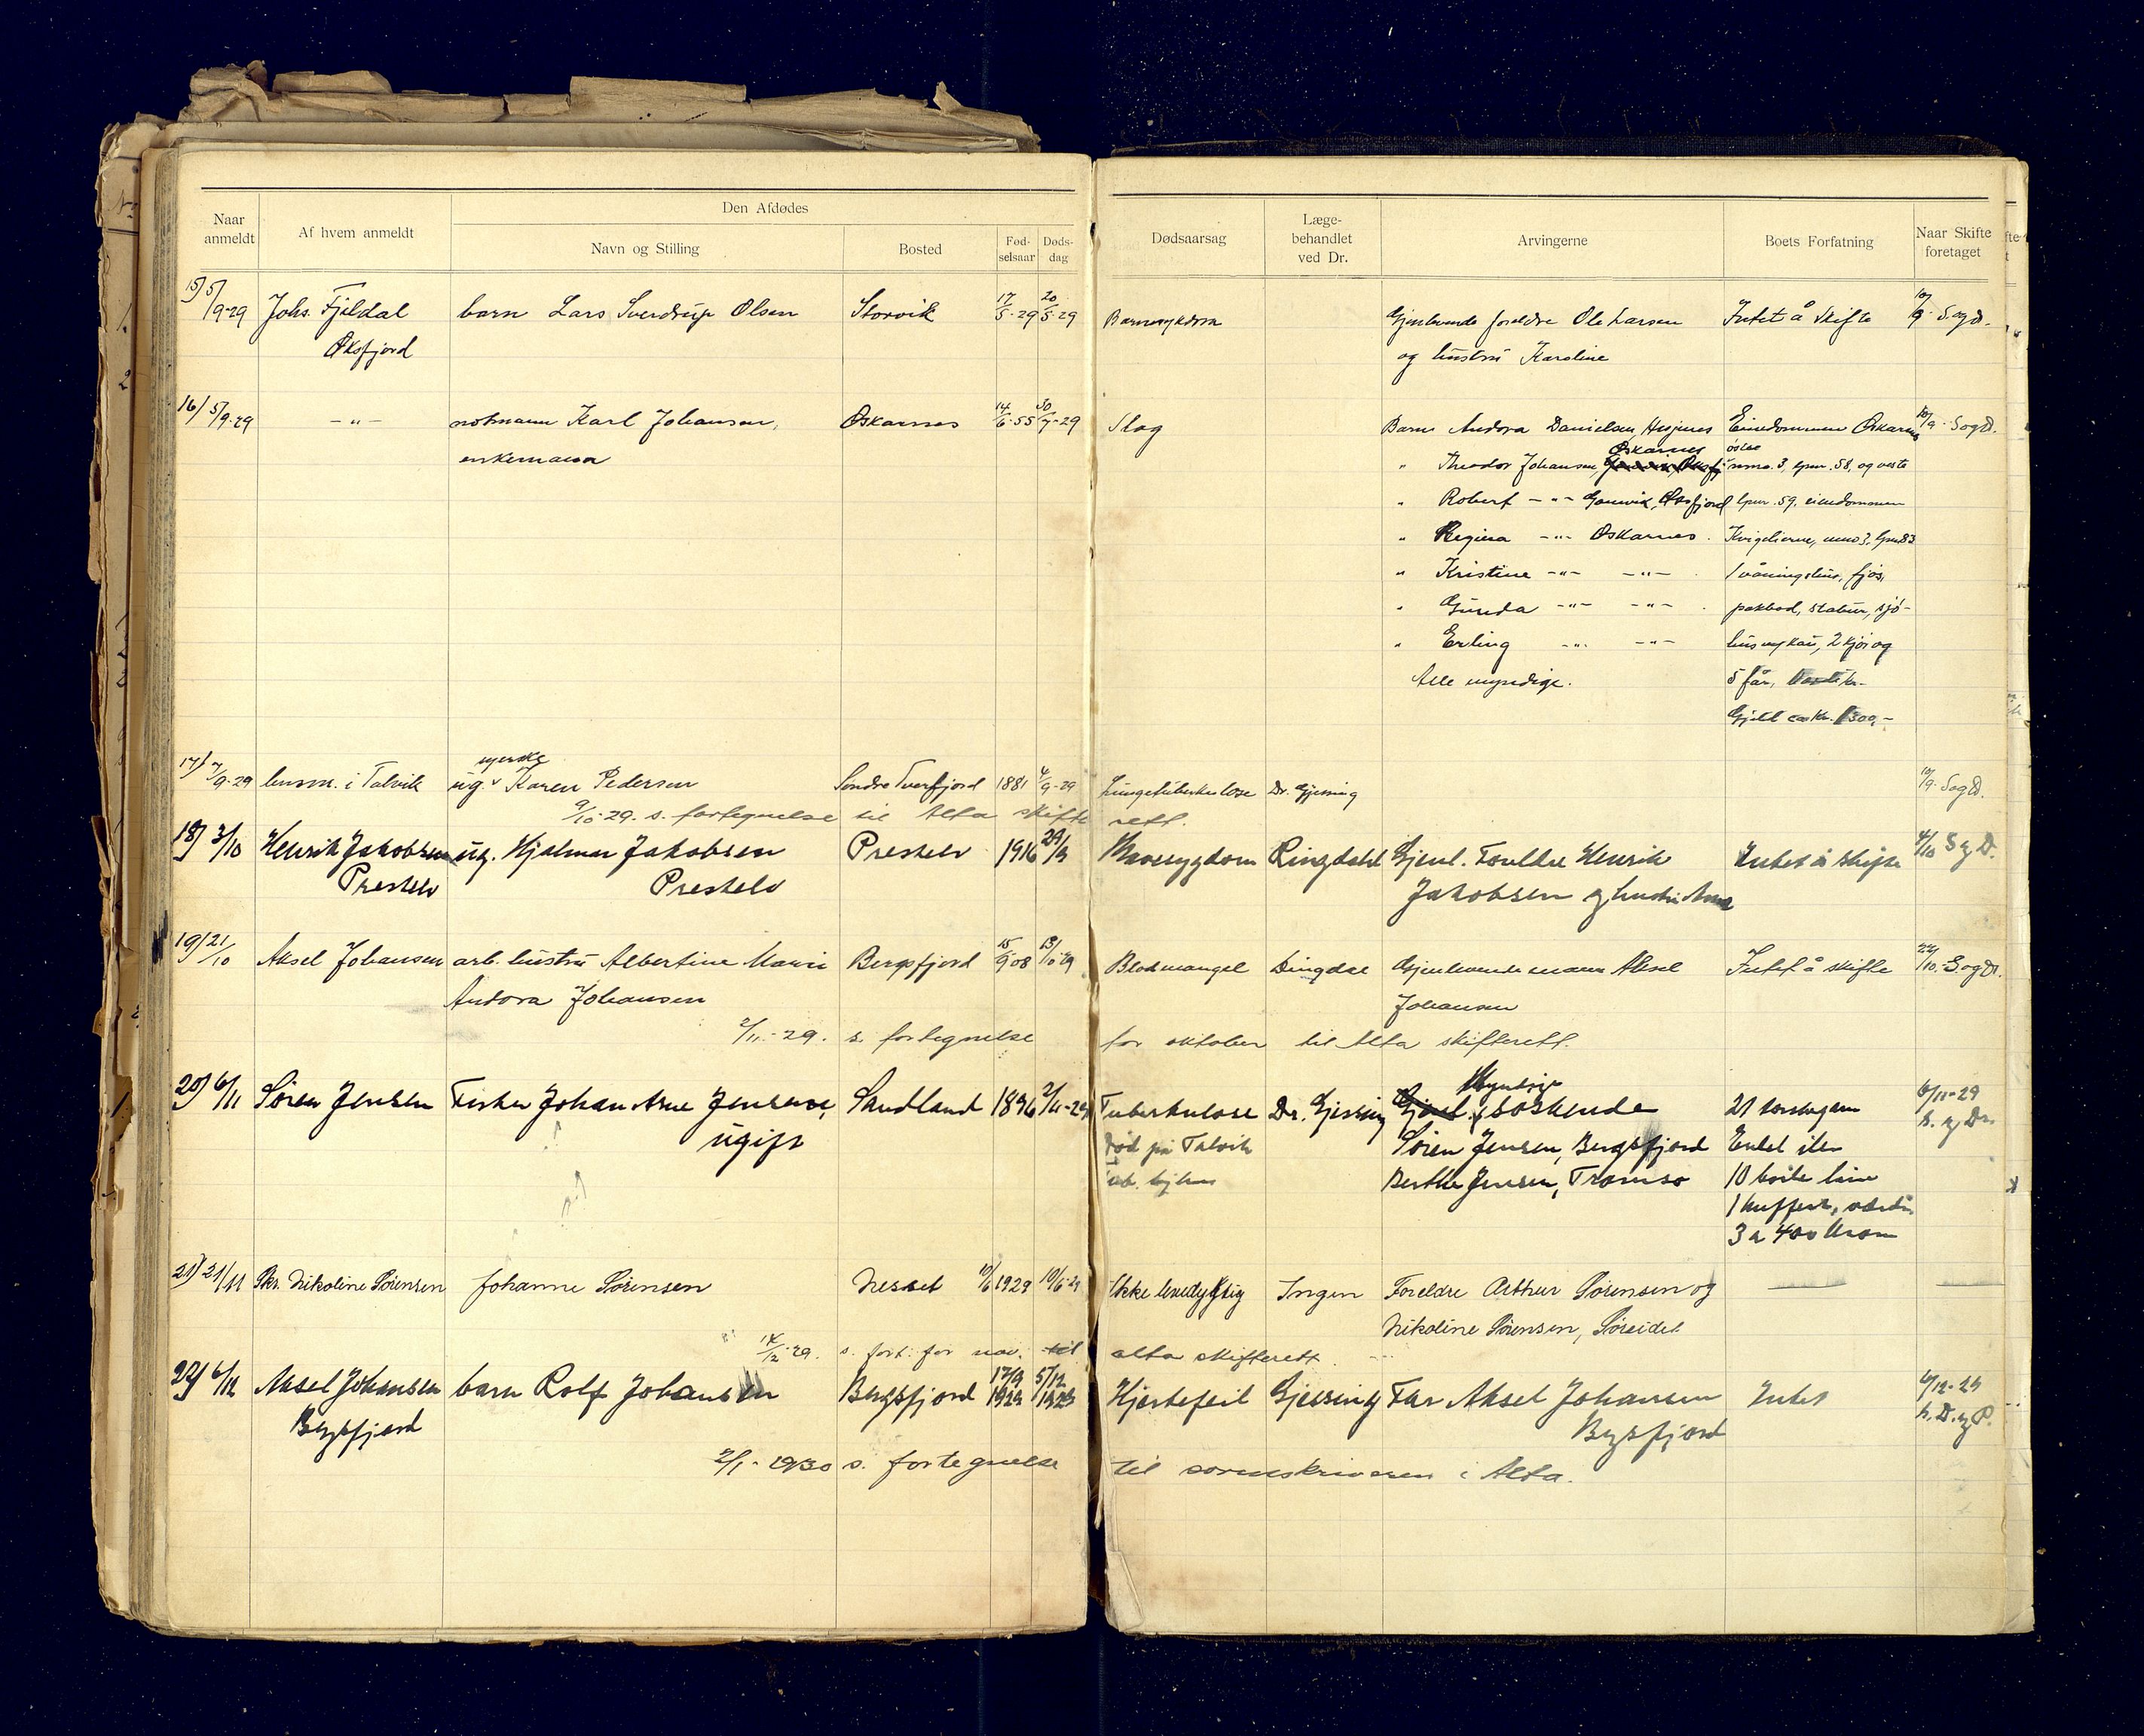 Naar anmeldt
Af hvem anmeldt
Den Afdødes
Navn og Stilling
Bosted
Fød-selsaar
Døds-dag
Dødsaarsag
Læge-behandlet ved Dr.
Arvingerne
Boets Forfatning
Naar Skifte foretaget
15) 5/9-29 Johs. Fjeldal barn Lars Sverdrup Olsen Storvik 17/5-29 20/5-29 Barnesykdom Gjenlevende foreldre Ole Larsen Intet å skifte 10/9 S.og D.
Øksfjord og hustru Karoline
16) 5/9-29 -"- notmann Karl Johansen, Oskarnes 14/6-55 30/7-29 Slag Barn Andora Danielsen, Eiendommen Oskarnes 10/9 S og D.
enkemann Oskarnes
" Theodor Johansen, nrno. 3, lpnr. 58, og
" Robert -"- Øksfjord lpnr. 59, eiendommen
" Regina -"- Oskarnes.
" Kristine -"- -"- . 1 våningshus, fjøs,
" Gunda -"- -"- . stabur, sjø-
" Erling -"- -"- 2 kjør og
Alle myndige. 5 får,
Gjeld ca kr.
syerske
17) 7/9-29 lensm. i Talvik ug. Karen Pedersen Søndre Tverfjord 1881 4/9-29 Lungetuberkulose Dr. Gjessing 10/9. S og D.
9/10-29. s. fortegnelse til Alta skifte rett.
18) 3/10 Henrik Jakobsen ug. Hjalmar Jakobsen Prestelv 1916 Ringdahl Gjenl. Foreldre Henrik Intet å skifte 4/10 S og D.
Prestelv Prestelv Jakobsen og hustru Anna
19) 21/10 Aksel Johansen arb. hustru Albertine Marie Bergsfjord 15/9-08 13/10-29 Blodmangel Gjenlevende mann Aksel Intet å skifte 22/10. S og D.
Andora Johansen Johansen
2/11-29. s. fortegnelse for oktober til Alta skifterett.
Myndige
20) 6/11 Søren Jensen Fisker Johan Arne Jensen, Sandland 1896 2/11-29 Tuberkulose Dr. Gjessing søskende 21 6/11-29
ugift Død på Talvik Søren Jensen, Bergsfjord Endel
Berthe Jensen, Tromsø 10
1 kuffert,
3 a 400 kroner
21) 21/11 Nikoline Sørensen Johanne Sørensen Nesset 10/6 1929 10/6-29 Ikke levedyktig Ingen Foreldre Arthur Sørensen og
Nikoline Sørensen, Søreidet
14/12-29. s. fort. for nov. til alta skifterett.
22) 6/12 Aksel Johansen barn Rolf Johansen Bergsfjord 1929 5/12 1929 Hjertefeil Gjessing Far Aksel Johansen Intet 6/12-29
Bergsfjord Bergsfjord
2/1-1930 s. fortegnelse til sorenskriveren i Alta.